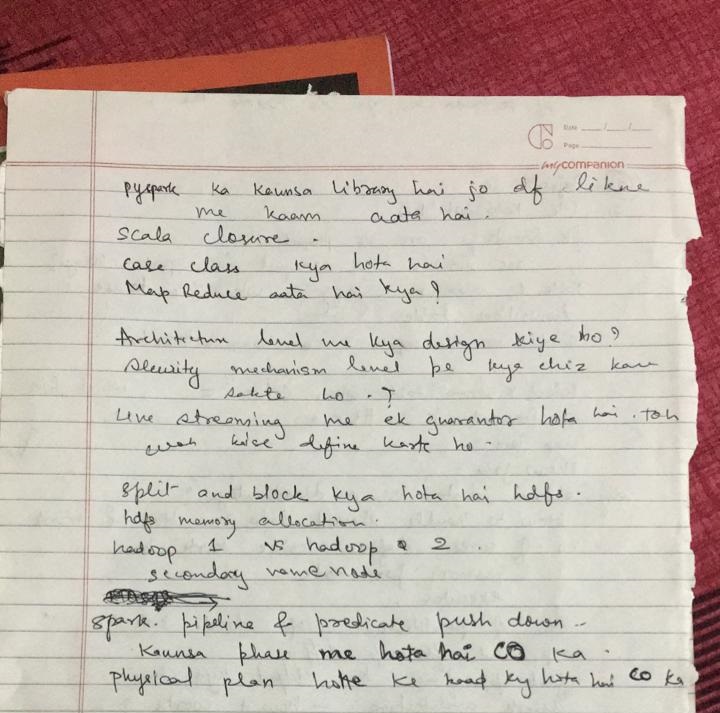 Date
Page
mycompanion
pyspark ka kaunsa library hai jo df likne
me kaam aata hai.
Scala closure.
case class kya hota hai
Map Reduce aata hai kya?
Architecture level me kya design kiye ho?
Security mechanism level pe kya chiz kar
sakte ho.?
Live streaming me ek guarantor hota hai. toh
woh kaise define karte ho.
Split and block kya hota hai hdfs.
hdfs memory allocation.
hadoop 1 vs hadoop 2.
secondary namenode
spark. pipeline & predicate push down..
Kaunsa phase me hota hai CO ka.
physical plan hone ke baad ky hota hai CO ka